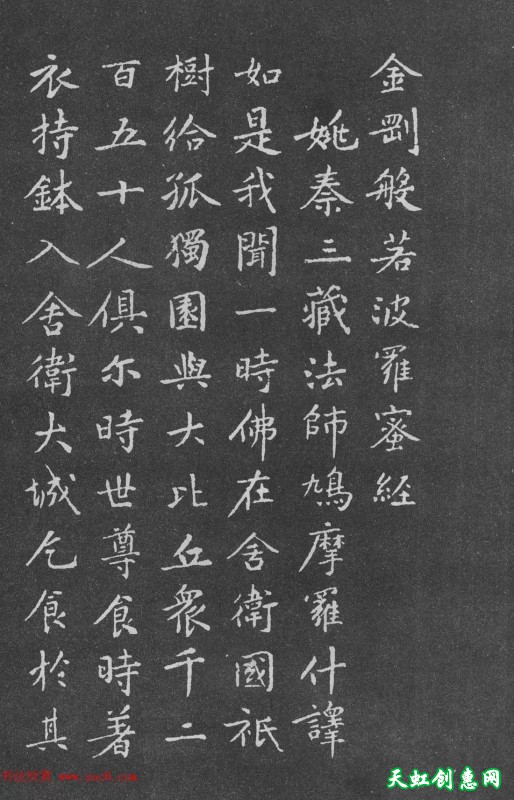 金剛般若波羅蜜經
姚秦三藏法師鳩摩羅什譯
如是我聞一時佛在舍衛國祇
樹給孤獨園與大比丘衆千二
百五十人俱尔時世尊食時著
衣持鉢入舍衛大城乞食於其
天虹创惠网